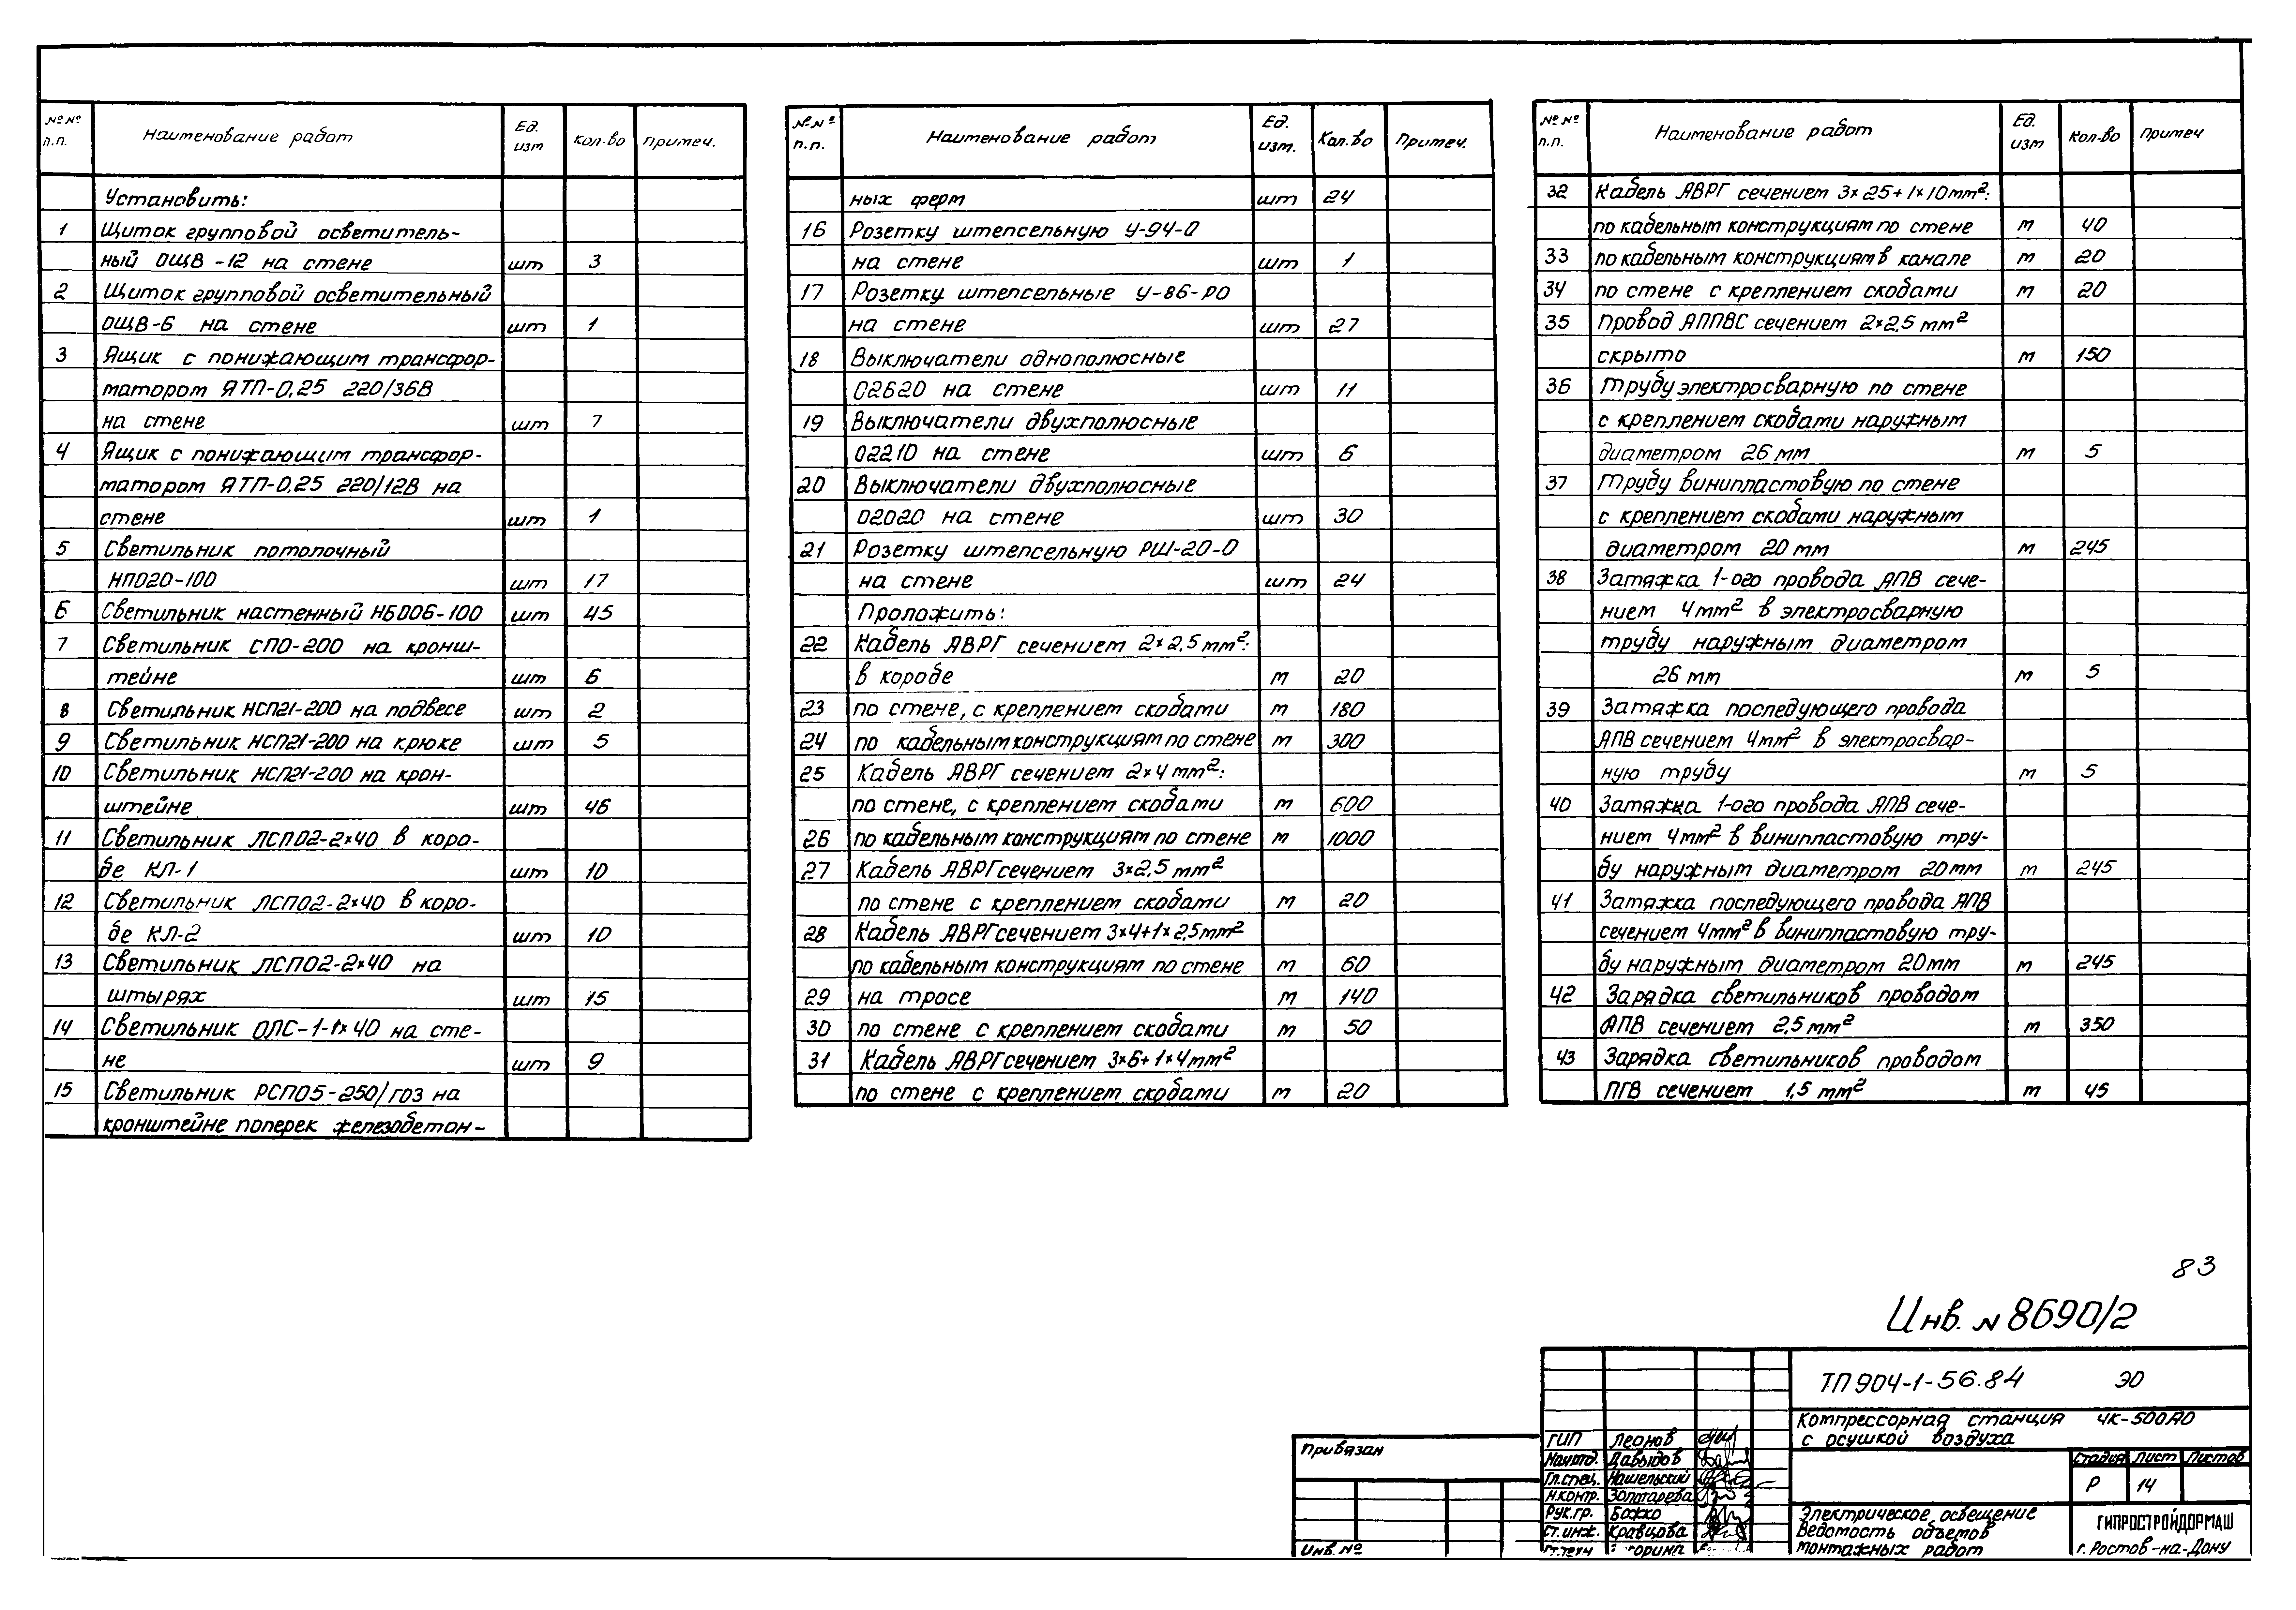 №№ п.п. Наименование работ Ед. изм Кол-во Примеч.
Установить:
1 Щиток групповой осветитель-
ный ОЩВ-12 на стене шт 3
2 Щиток групповой осветительный
ОЩВ-6 на стене шт 1
3 Ящик с понижающим трансфор-
матором ЯТП-0,25 220/36В
на стене шт 7
4 Ящик с понижающим трансфор-
матором ЯТП-0,25 220/12В на
стене шт 1
5 Светильник потолочный
НПО20-100 шт 17
6 Светильник настенный НБО06-100 шт 45
7 Светильник СПО-200 на кронш-
тейне шт 6
8 Светильник НСП21-200 на подвесе шт 2
9 Светильник НСП21-200 на крюке шт 5
10 Светильник НСП21-200 на крон-
штейне шт 46
11 Светильник ЛСП02-2×40 в коро-
бе КЛ-1 шт 10
12 Светильник ЛСП02-2×40 в коро-
бе КЛ-2 шт 10
13 Светильник ЛСП02-2×40 на
штырях шт 15
14 Светильник ОЛС-1-1×40 на сте-
не шт 9
15 Светильник РСП05-250/Г03 на
кронштейне поперек железобетон-
№№ п.п. Наименование работ Ед. изм. Кол.во Примеч.
ных ферм шт 24
16 Розетку штепсельную У-94-0
на стене шт 1
17 Розетку штепсельные У-86-РО
на стене шт 27
18 Выключатели однополюсные
02620 на стене шт 11
19 Выключатели двухполюсные
02210 на стене шт 6
20 Выключатели двухполюсные
02020 на стене шт 30
21 Розетку штепсельную РШ-20-0
на стене шт 24
Проложить:
22 Кабель АВРГ сечением 2×2,5 мм²:
в коробе м 20
23 по стене, с креплением скобами м 180
24 по кабельным конструкциям по стене м 300
25 Кабель АВРГ сечением 2×4 мм²:
по стене, с креплением скобами м 600
26 по кабельным конструкциям по стене м 1000
27 Кабель АВРГ сечением 3×2,5 мм²
по стене с креплением скобами м 20
28 Кабель АВРГ сечением 3×4+1×2,5 мм²
по кабельным конструкциям по стене м 60
29 на тросе м 140
30 по стене с креплением скобами м 50
31 Кабель АВРГ сечением 3×6+1×4 мм²
по стене с креплением скобами м 20
№№ п.п. Наименование работ Ед. изм Кол-во Примеч
32 Кабель АВРГ сечением 3×25+1×10 мм²:
по кабельным конструкциям по стене м 40
33 по кабельным конструкциям в канале м 20
34 по стене с креплением скобами м 20
35 Провод АППВС сечением 2×2,5 мм²
скрыто м 150
36 Трубу электросварную по стене
с креплением скобами наружным
диаметром 26 мм м 5
37 Трубу винипластовую по стене
с креплением скобами наружным
диаметром 20 мм м 245
38 Затяжка 1-ого провода АПВ сече-
нием 4 мм² в электросварную
трубу наружным диаметром
26 мм м 5
39 Затяжка последующего провода
АПВ сечением 4 мм² в электросвар-
ную трубу м 5
40 Затяжка 1-ого провода АПВ сече-
нием 4 мм² в винипластовую тру-
бу наружным диаметром 20 мм м 245
41 Затяжка последующего провода АПВ
сечением 4 мм² в винипластовую тру-
бу наружным диаметром 20 мм м 245
42 Зарядка светильников проводом
АПВ сечением 2,5 мм² м 350
43 Зарядка светильников проводом
ПГВ сечением 1,5 мм² м 45
83
Инв. N 8690/2
ТП 904-1-56.84 ЭО
Компрессорная станция 4К-500АО
с осушкой воздуха
Привязан
Инв. №
ГИП Леонов
Нач.отд. Давыдов
Гл.спец. Нашельский
Н.контр. Золотарева
Рук.гр. Божко
Ст.инж. Кравцова
Ст.техн
Стадия Лист Листов
Р 14
Электрическое освещение
Ведомость объемов
монтажных работ
ГИПРОСТРОЙДОРМАШ
г. Ростов-на-Дону